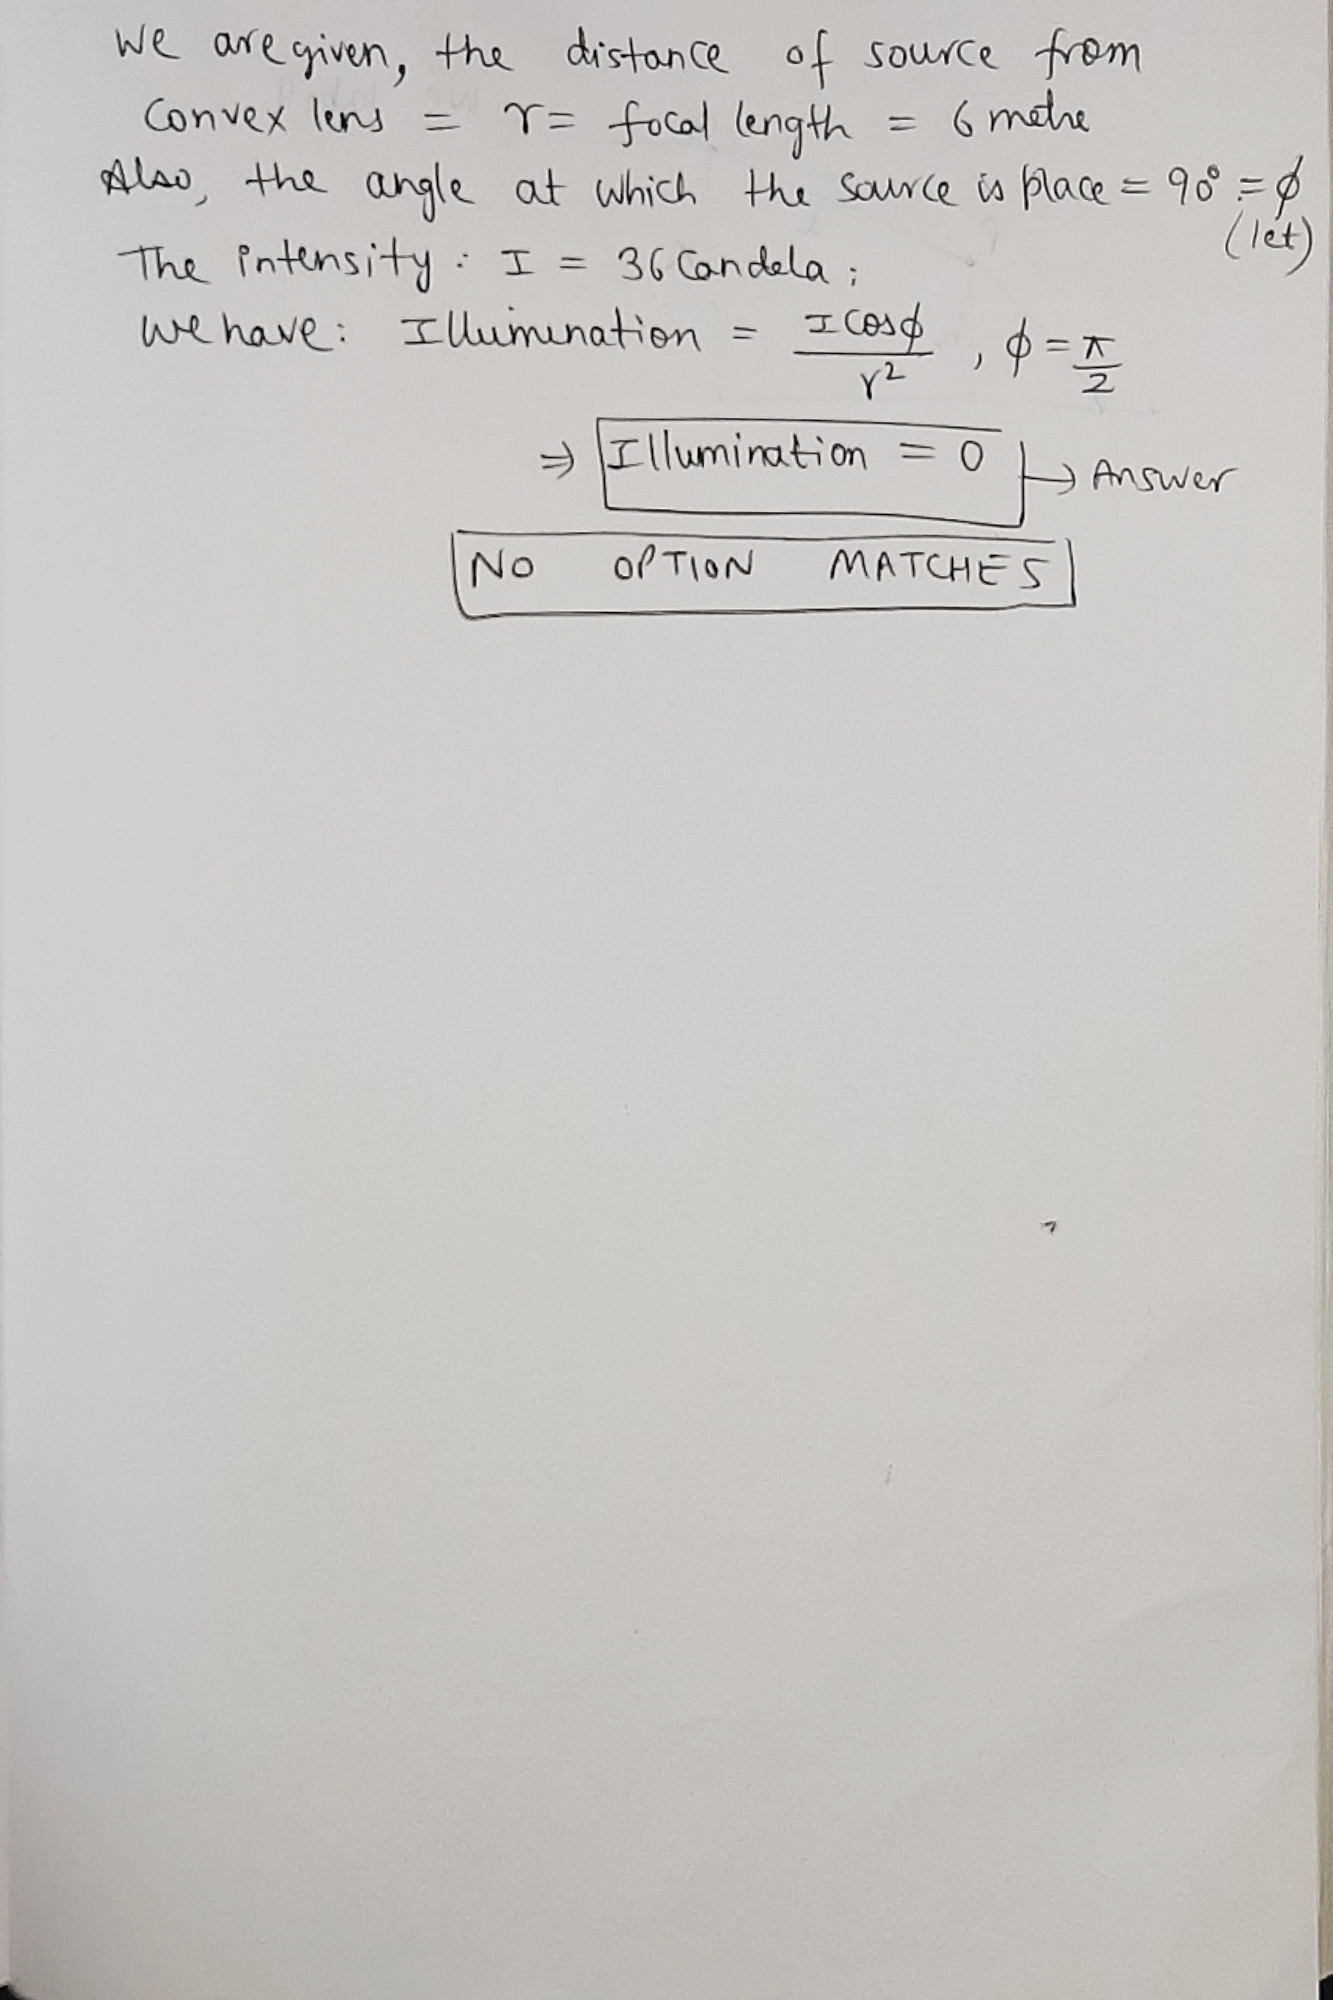 We are given, the distance of source from
Convex lens = r = focal length = 6 metre
Also, the angle at which the source is place = 90° = ϕ
(let)
The intensity : I = 36 Candela ;
We have: Illumination = I cosϕ / r² , ϕ = π/2
⇒ Illumination = 0 → Answer
NO OPTION MATCHES